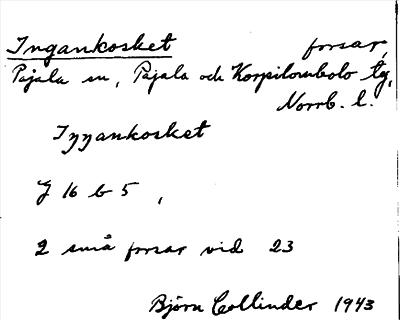 Ingankosket forsar,
Pajala sn, Pajala och Korpilombolo tg,
Norrb. l.
Iŋŋankosket
J 16 b 5 ,
2 små forsar vid 23
Björn Collinder 1943